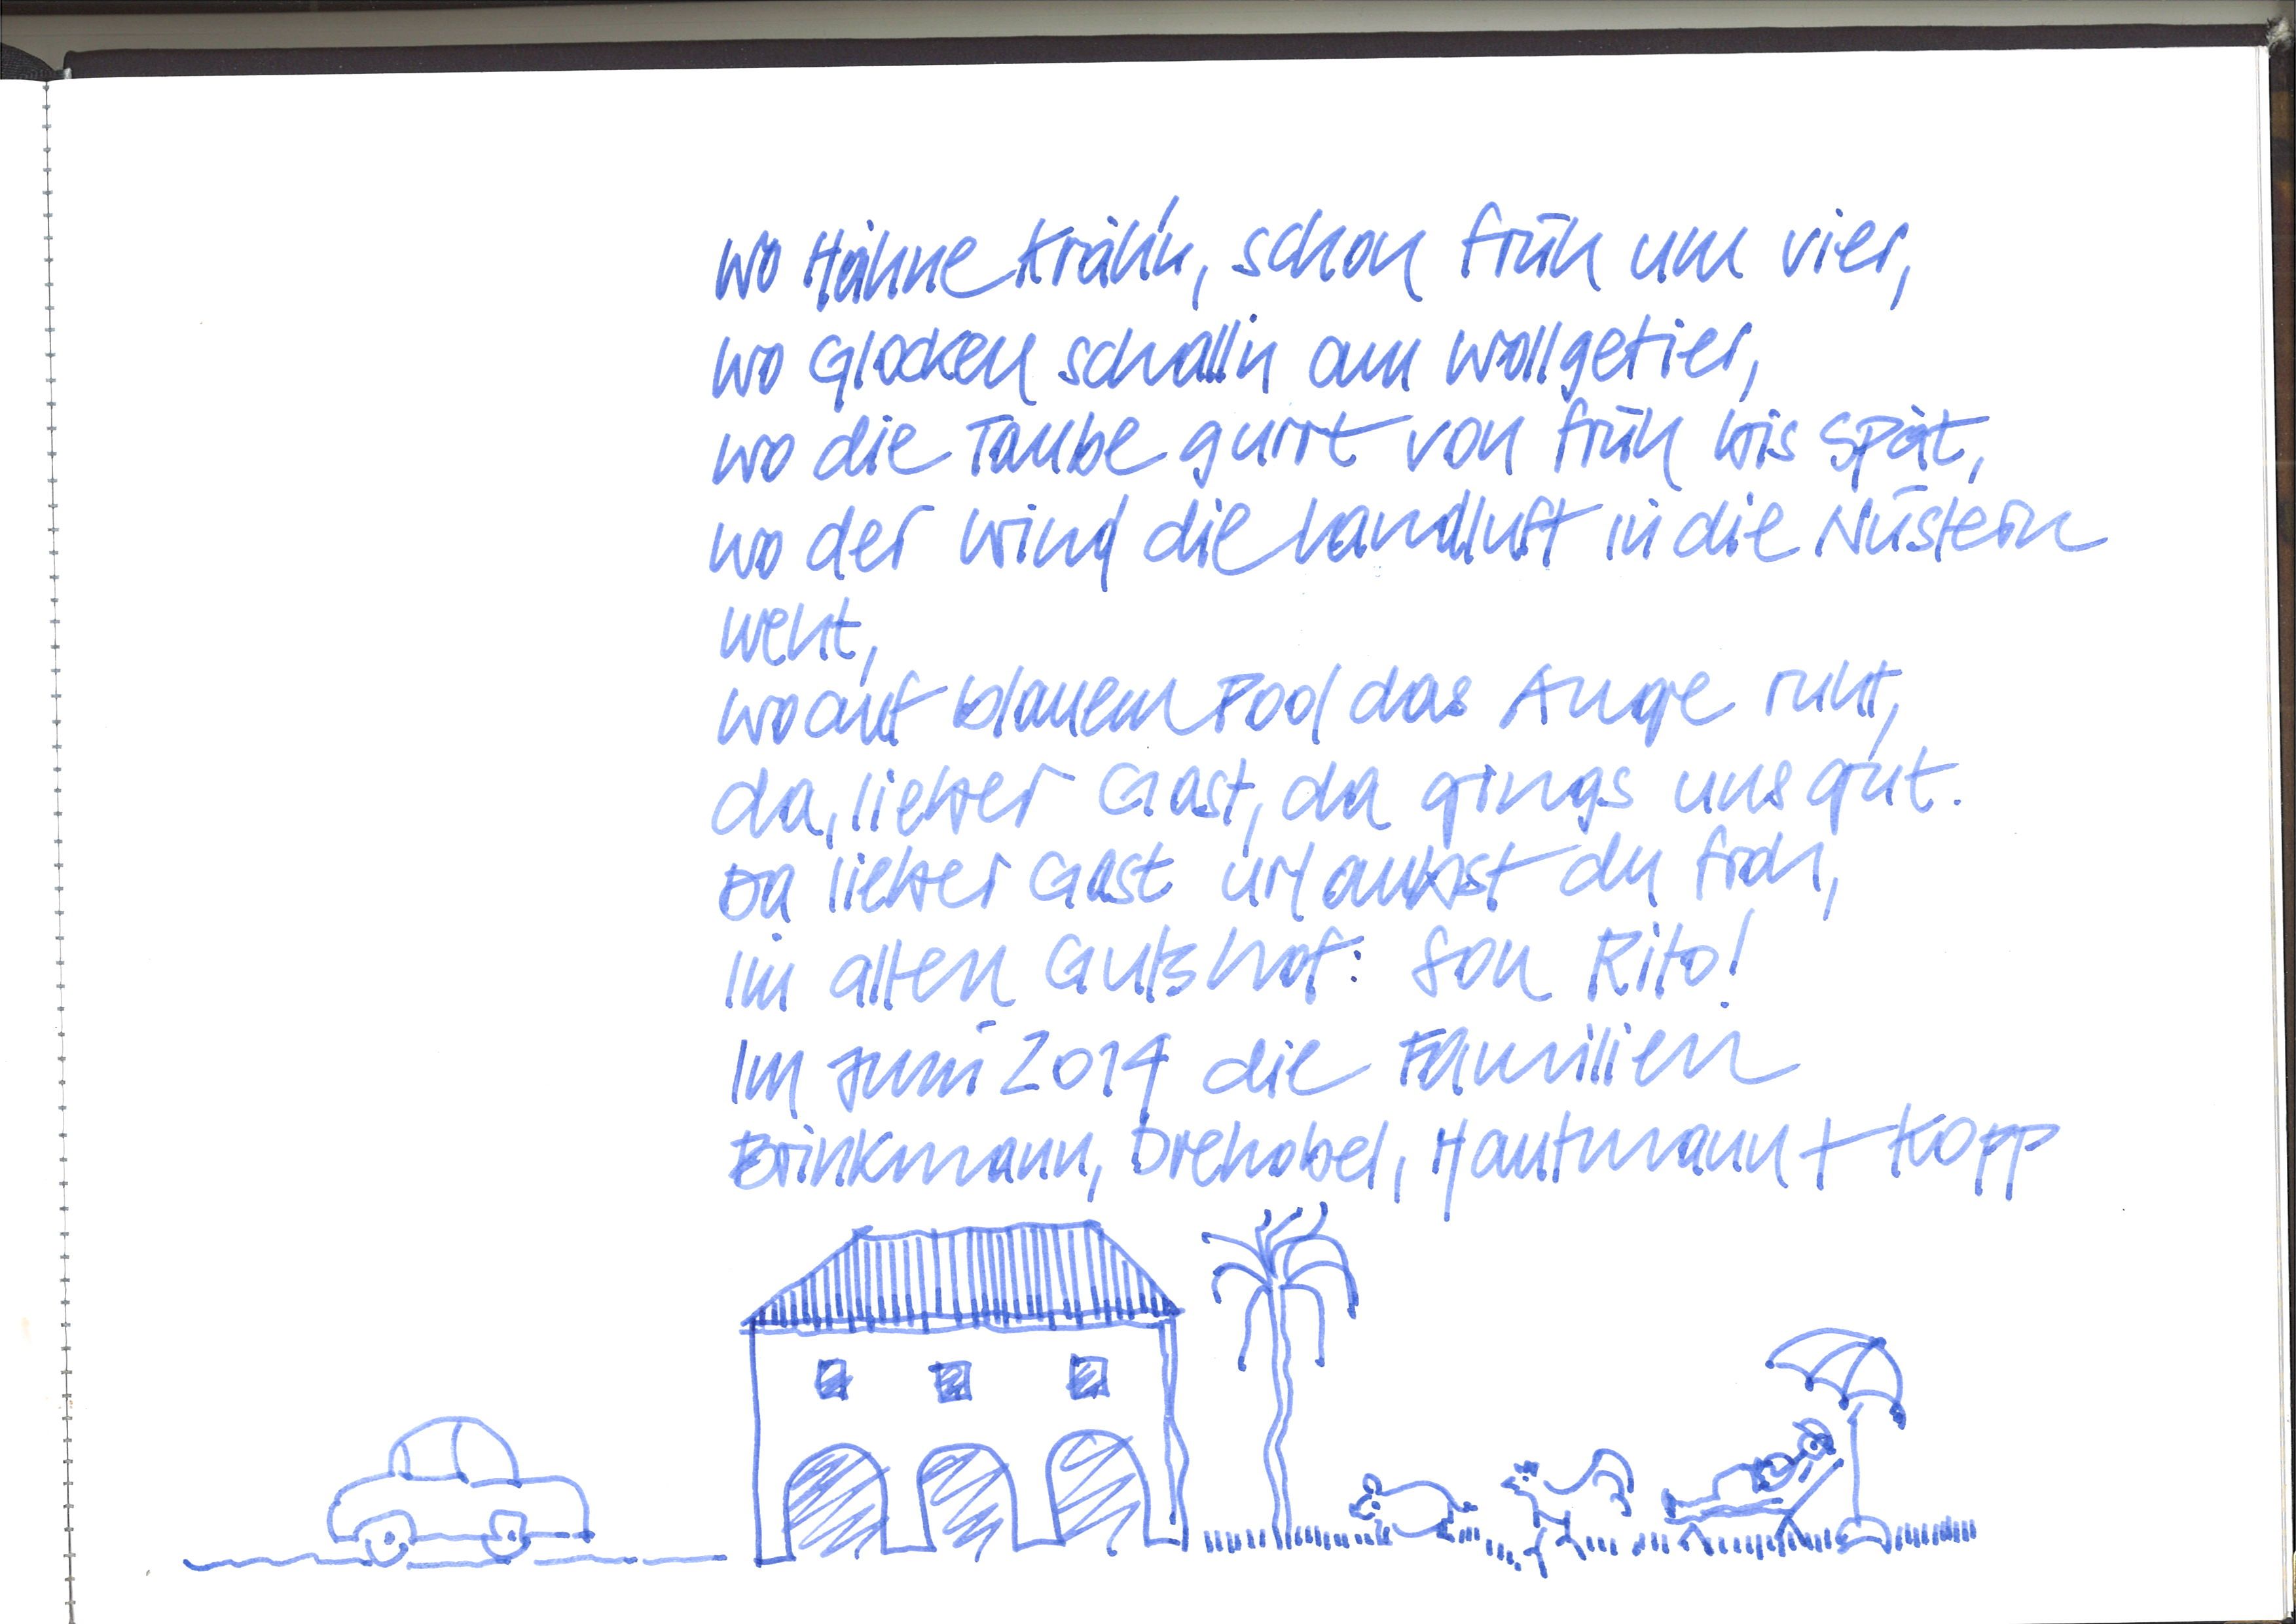 wo Hähne kräh'n, schon früh um vier,
wo Glocken schalln am Wollgetier,
wo die Taube gurrt von früh bis spät,
wo der Wind die Landluft in die Nüstern
weht,
wo auf blauem Pool das Auge ruht,
da, lieber Gast, da gings uns gut.
Da lieber Gast urlaubst du froh,
im alten Gutshof: Son Rito!
Im Juni 2014 die Familien
Brinkmann, Drehobel, Hautmann + Kopp